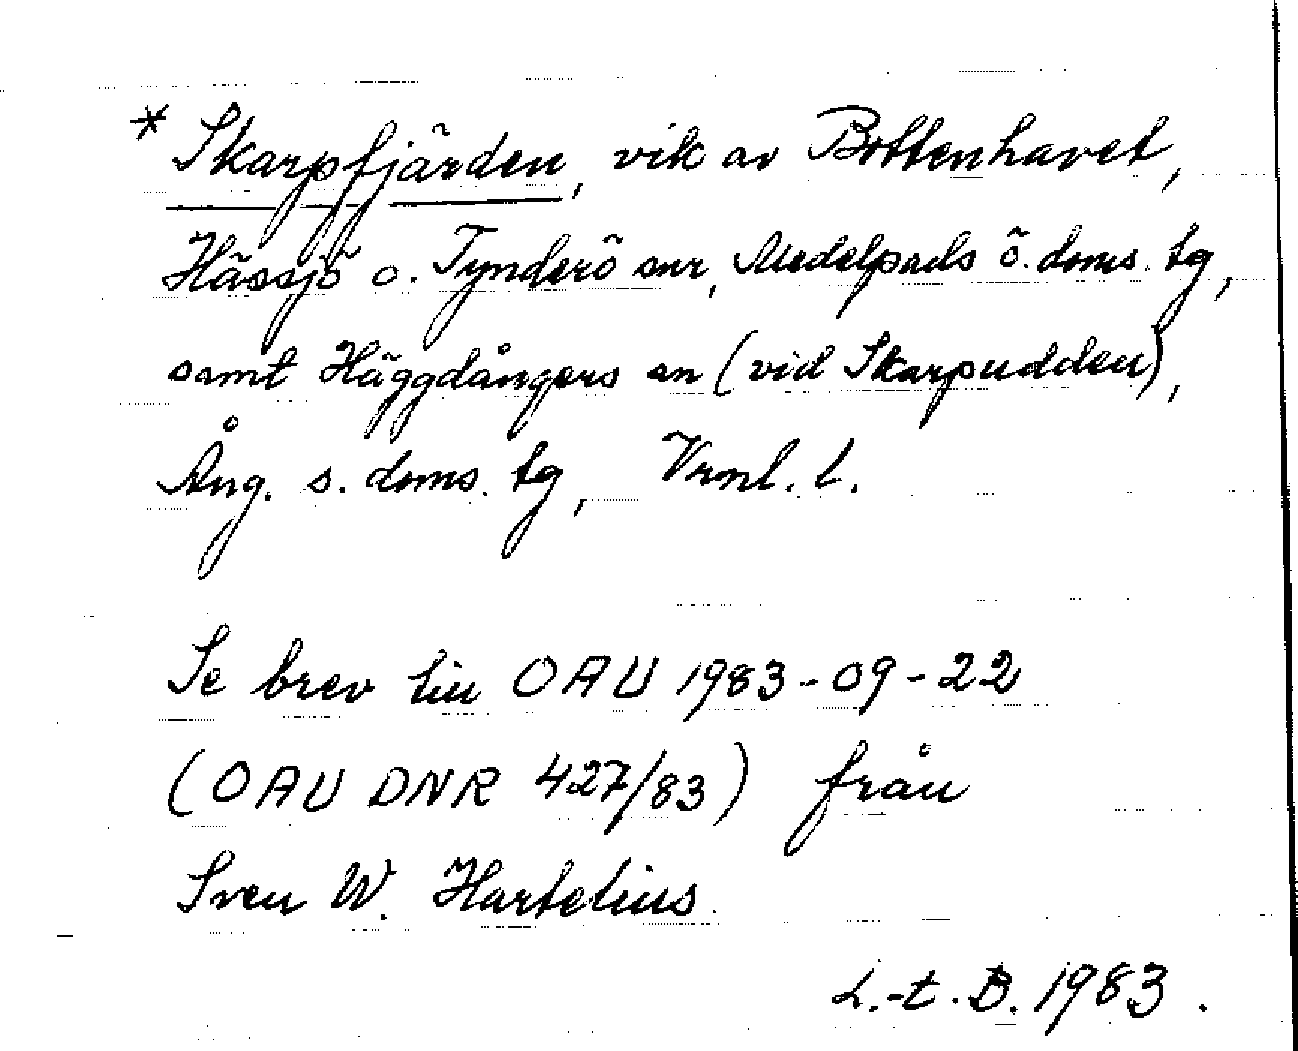 * Skarpfjärden, vik av Bottenhavet,
Hässjö o. Tynderö snr, Medelpads ö. doms. tg,
samt Häggdångers sn (vid Skarpudden),
Ång. s. doms. tg, Vrnl. l.
Se brev till OAU 1983-09-22
(OAU DNR 427/83) från
Sven W. Hartelius.
L.-t. B. 1983.